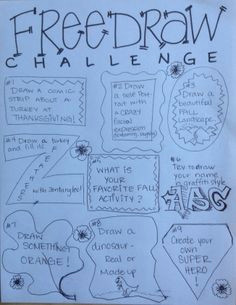 FREEDRAW
CHALLENGE
#1
DRAW A COMIC-
STRIP ABOUT A
TURKEY AT
THANKSGIVING!
#2 DRAW
a self Por-
trait with
a CRAZY
facial
expression
#3
Draw a
beautiful
FALL
Landscape.
#4 Draw a turkey
and fill its
FEATHERS
with zentangles!
#5
WHAT IS
YOUR
FAVORITE FALL
ACTIVITY?
#6
Try to draw
your name
graffiti style
#7
DRAW
SOMETHING
ORANGE!
#8
Draw a
dinosaur-
Real or
Made up
#9
Create your
own
SUPER
HERO!